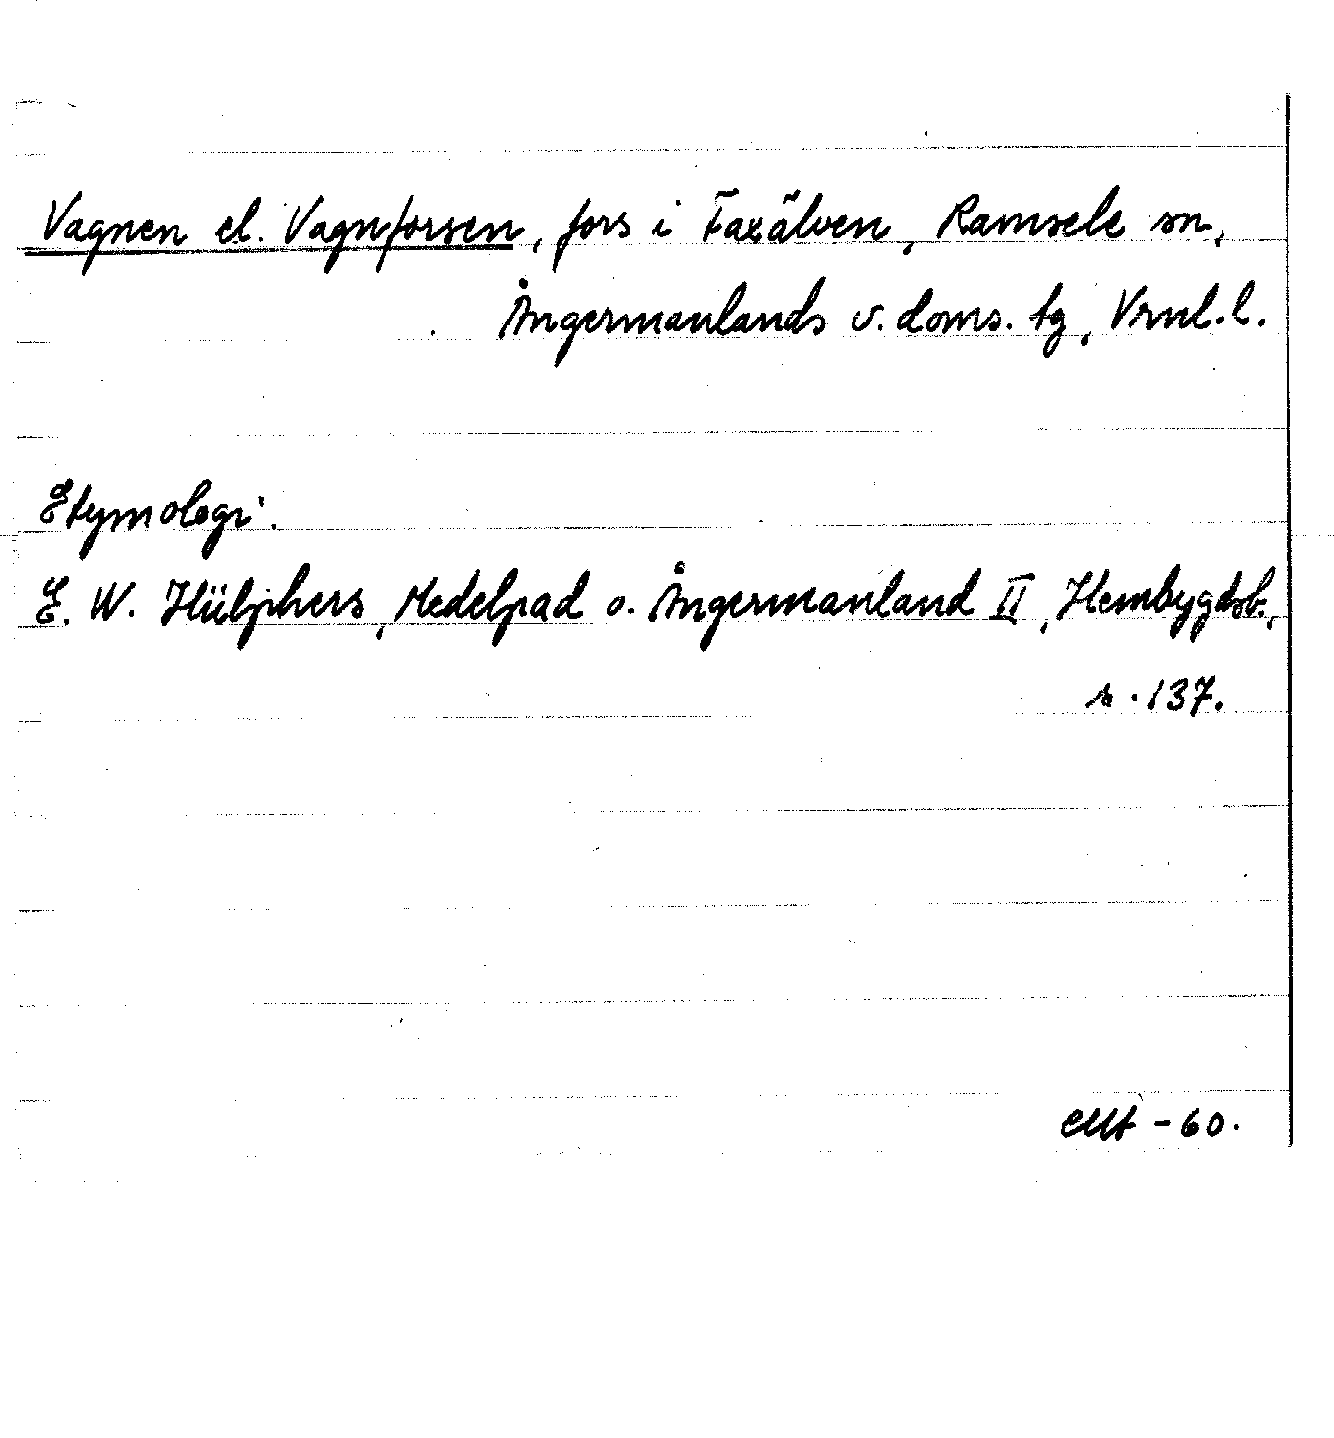 Vagnen el. Vagnforsen, fors i Faxälven, Ramsele sn,
Ångermanlands v. doms. tg, Vrnl. l.
Etymologi.
E. W. Hülphers, Medelpad o. Ångermanland II, Hembygdsb.,
s. 137.
-60.